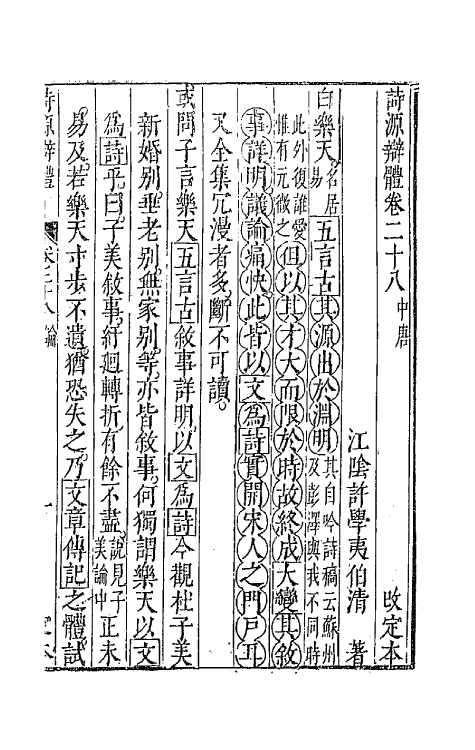 詩源辯體卷二十八 中唐 改定本
江陰許學夷伯清 著
白樂天名居易五言古其源出於淵明其自吟詩稿云蘇州及彭澤與我不同時
此外復誰愛惟有元微之但以其才大而限於時故終成大變其敘
事詳明議論痛快此皆以文爲詩實開宋人之門戶耳
又全集冗漫者多斷不可讀。
或問子言樂天五言古敘事詳明以文爲詩今觀杜子美
新婚別垂老別無家別等亦皆敘事何獨謂樂天以文
爲詩乎。曰子美敘事紆迴轉折有餘不盡說見子美論中正未
易及若樂天寸步不遺猶恐失之乃文章傳記之體試
詩源辯體 卷二十八 論 一 定本